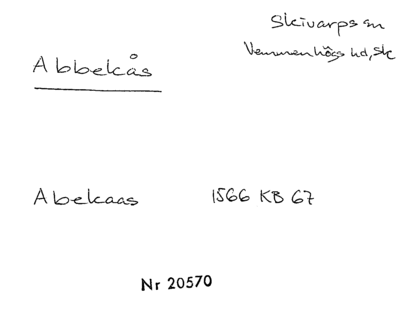 Skivarps sn
Vemmenhögs hd, Sk
Abbekås
Abekaas 1566 KB 67
Nr 20570